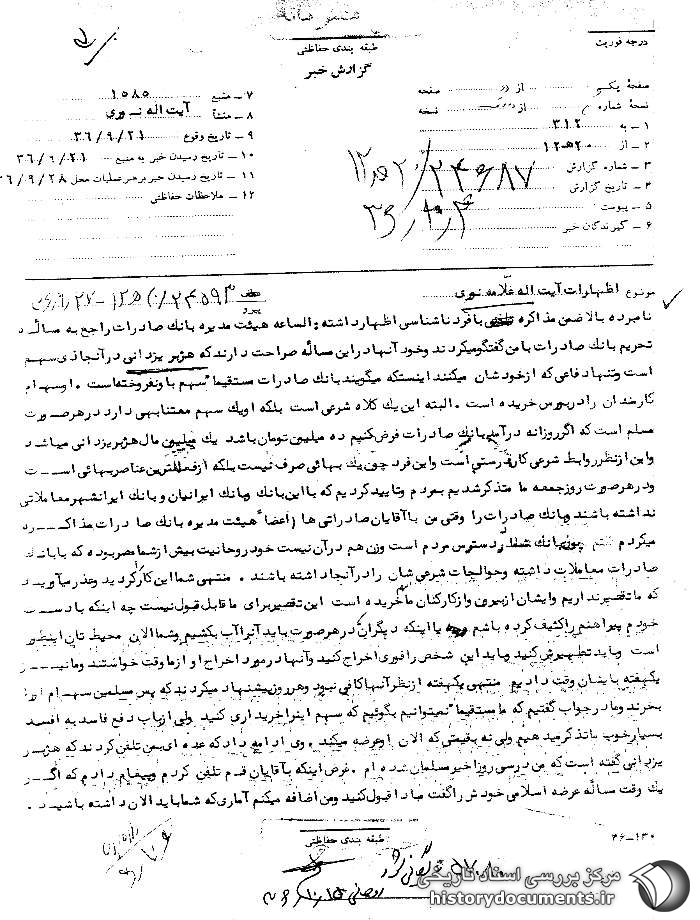 درجه فوریت
طبقه بندی حفاظتی
گزارش خبر
صفحهٔ یک از دو صفحه
نسخهٔ شماره از نسخه
۱ـ به ۳۱۲
۲ـ از ۲۰ه۱۲
۳ـ شماره گزارش ۲۰ه۱۲/۲۴۶۸۷
۴ـ تاریخ گزارش ۳۶/۱۰/۴
۵ـ پیوست
۶ـ گیرندگان خبر
۷ـ منبع ۱۵۸۵
۸ـ منشأ آیت اله نوری
۹ـ تاریخ وقوع ۳۶/۹/۲۱
۱۰ـ تاریخ رسیدن خبر به منبع ۳۶/۹/۲۱
۱۱ـ تاریخ رسیدن خبر برهبر عملیات محل ۳۶/۹/۲۸
۱۲ـ ملاحظات حفاظتی
موضوع اظهارات آیت اله علامه نوری
نامبرده بالا ضمن مذاکره تلفنی با فرد ناشناسی اظهار داشته : الساعه هیئت مدیره بانک صادرات راجع به مسأله
تحریم بانک صادرات با من گفتگو میکردند و خود آنها در این مسأله صراحت دارند که هژبر یزدانی در آنجا ذی سهم
است و تنها دفاعی که از خودشان میکنند اینستکه میگویند بانک صادرات مستقیما" سهم باو نفروخته است . او سهام
کارمندان را در بورس خریده است . البته این یک کلاه شرعی است بلکه او یک سهم معتنابهی دارد در هر صورت
مسلم است که اگر روزانه درآمد بانک صادرات فرض کنیم ده میلیون تومان باشد یک میلیون مال هژبر یزدانی میباشد
و این از نظر روابط شرعی کار نادرستی است و این فرد چون یک بهائی صرف نیست بلکه از فعالترین عناصر بهائی است
و در هر صورت روز جمعه ما متذکر شدیم بمردم و تایید کردیم که با این بانک و بانک ایرانیان و بانک ایرانشهر معاملاتی
نداشته باشند و بانک صادرات را وقتی من با آقایان صادراتی ها (اعضاء هیئت مدیره بانک صادرات مذاکره
میکردم گفتم چون بانک شما در دسترس مردم است وزن هم در آن نیست خود روحانیت بیش از شما مصر بوده که با بانک
صادرات معاملات داشته و حوالجات شرعی شان را در آنجا داشته باشند . منتهی شما این کار را کردید و عذر میآورید
که ما تقصیر نداریم و ایشان از بیرون و از کارکنان ما سهم خریده است این تقصیر برای ما قابل قبول نیست چه اینکه با دست
خودم پیراهنم را کثیف کرده باشم و یا اینکه دیگران در هر صورت باید آنرا آب بکشیم و شما الان محیط تان اینطور
است و باید تطهیرش کنید و باید این شخص را فوری اخراج کنید و آنها در مورد اخراج او از ما وقت خواستند و ما نیز
یکهفته بایشان وقت دادیم منتهی یکهفته از نظر آنها کافی نبود و هر روز پیشنهاد میکردند که پس مسلمین سهام او را
بخرند و ما در جواب گفتیم که ما مستقیما" نمیتوانیم بگوئیم که سهم اینرا خریداری کنید ولی از باب دفع فاسد به افسد
بسیار خوب ما تذکر میدهیم ولی نه بقیمتی که الان او عرضه میکند . وی ادامه داد که عده ای بمن تلفن کردند که هژبر
یزدانی گفته است که من در سی روز اخیر مسلمان شده ام . غرض اینکه با آقایان قم تلفن کردم و پیغام دادم که اگر
یک وقت مسأله عرضه اسلامی خودش را گفت مبادا قبول کنید و من اضافه میکنم آماری که شما باید الان داشته باشید .
طبقه بندی حفاظتی
۴۶ـ۱۳۰
مرکز بررسی اسناد تاریخی
historydocuments.ir